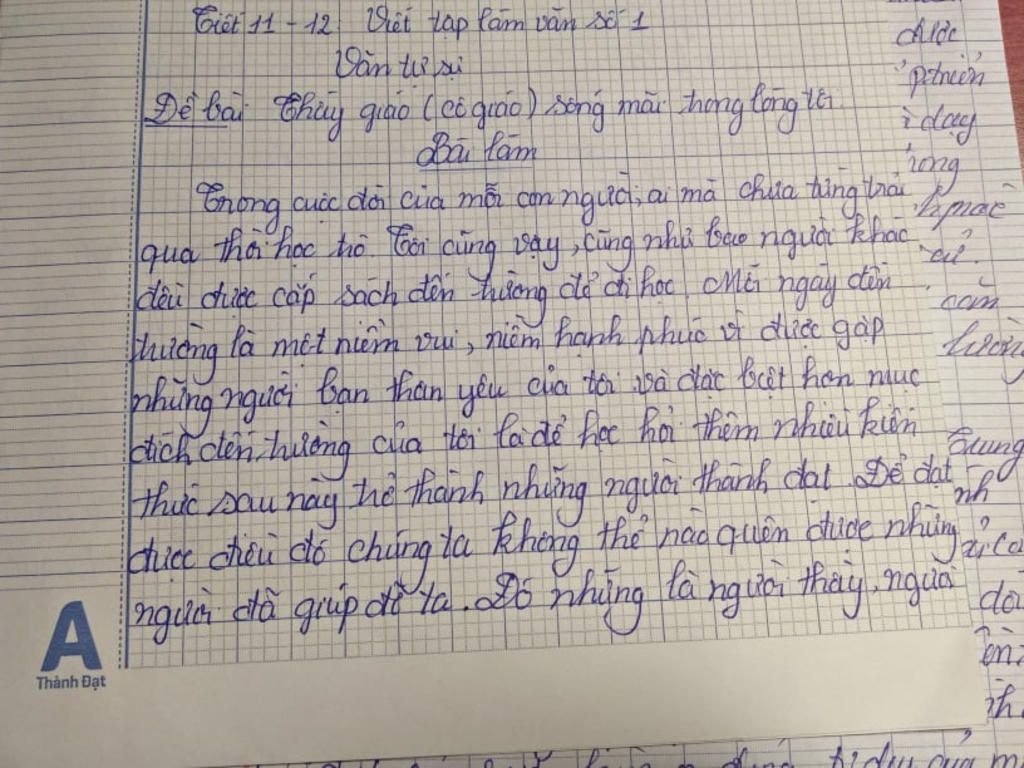 Tiết 11 - 12 Viết tập làm văn số 1
Văn tự sự
Đề bài Thầy giáo (cô giáo) sống mãi trong lòng tôi.
Bài làm
Trong cuộc đời của mỗi con người, ai mà chưa từng trải
qua thời học trò. Tôi cũng vậy, cũng như bao người khác
đều được cắp sách đến trường để đi học. Mỗi ngày đến
trường là một niềm vui, niềm hạnh phúc vì được gặp
những người bạn thân yêu của tôi và đặc biệt hơn mục
đích đến trường của tôi là để học hỏi thêm nhiều kiến
thức sau này trở thành những người thành đạt. Để đạt
được điều đó chúng ta không thể nào quên được những
người đã giúp đỡ ta. Đó những là người thầy, người
A
Thành Đạt